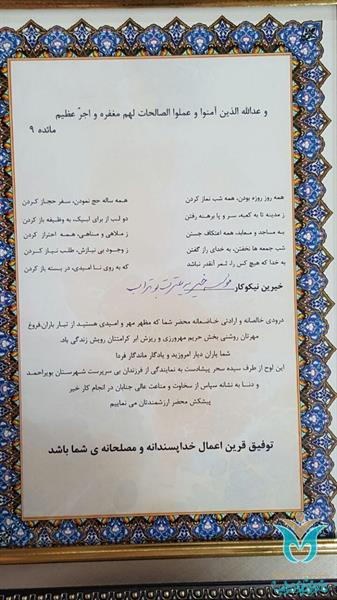 و عدالله الذین آمنوا و عملوا الصالحات لهم مغفره و اجرٌ عظیم
مائده ۹
همه روز روزه بودن، همه شب نماز کردن
همه ساله حج نمودن، سفر حجاز کردن
ز مدینه تا به کعبه، سر و پا برهنه رفتن
دو لب از برای لبیک، به وظیفه باز کردن
به مساجد و معابد، همه اعتکاف جستن
ز ملاهی و مناهی، همه احتراز کردن
شب جمعه ها نخفتن، به خدای راز گفتن
ز وجود بی نیازش، طلب نیاز کردن
به خدا که هیچ کس را، ثمر آنقدر نباشد
که به روی نا امیدی، در بسته باز کردن
خیرین نیکوکار
درودی خالصانه و ارادتی خاضعانه محضر شما که مظهر مهر و امیدی هستید از تبار باران،فروغ
مهرتان روشنی بخش حریم مهرورزی و ریزش ابر کرامتتان رویش زندگی باد.
شما یاران دیار امروزید و یادگار ماندگار فردا
این لوح از طرف سیده سحر پیشادست به نمایندگی از فرزندان بی سرپرست شهرستان بویراحمد
و دنا به نشانه سپاس از سخاوت و مناعت عالی جنابان در انجام کار خیر
پیشکش محضر ارزشمندتان می نماییم
توفیق قرین اعمال خداپسندانه و مصلحانه ی شما باشد